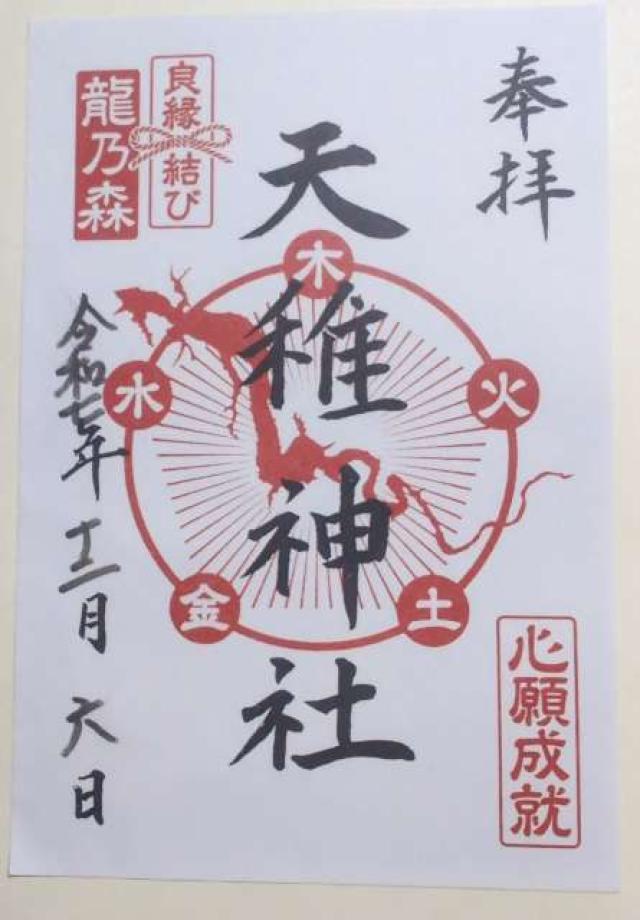 奉拝
心願成就
天稚神社
木
火
土
金
水
良縁結び
龍乃森
令和七年 十二月 六日